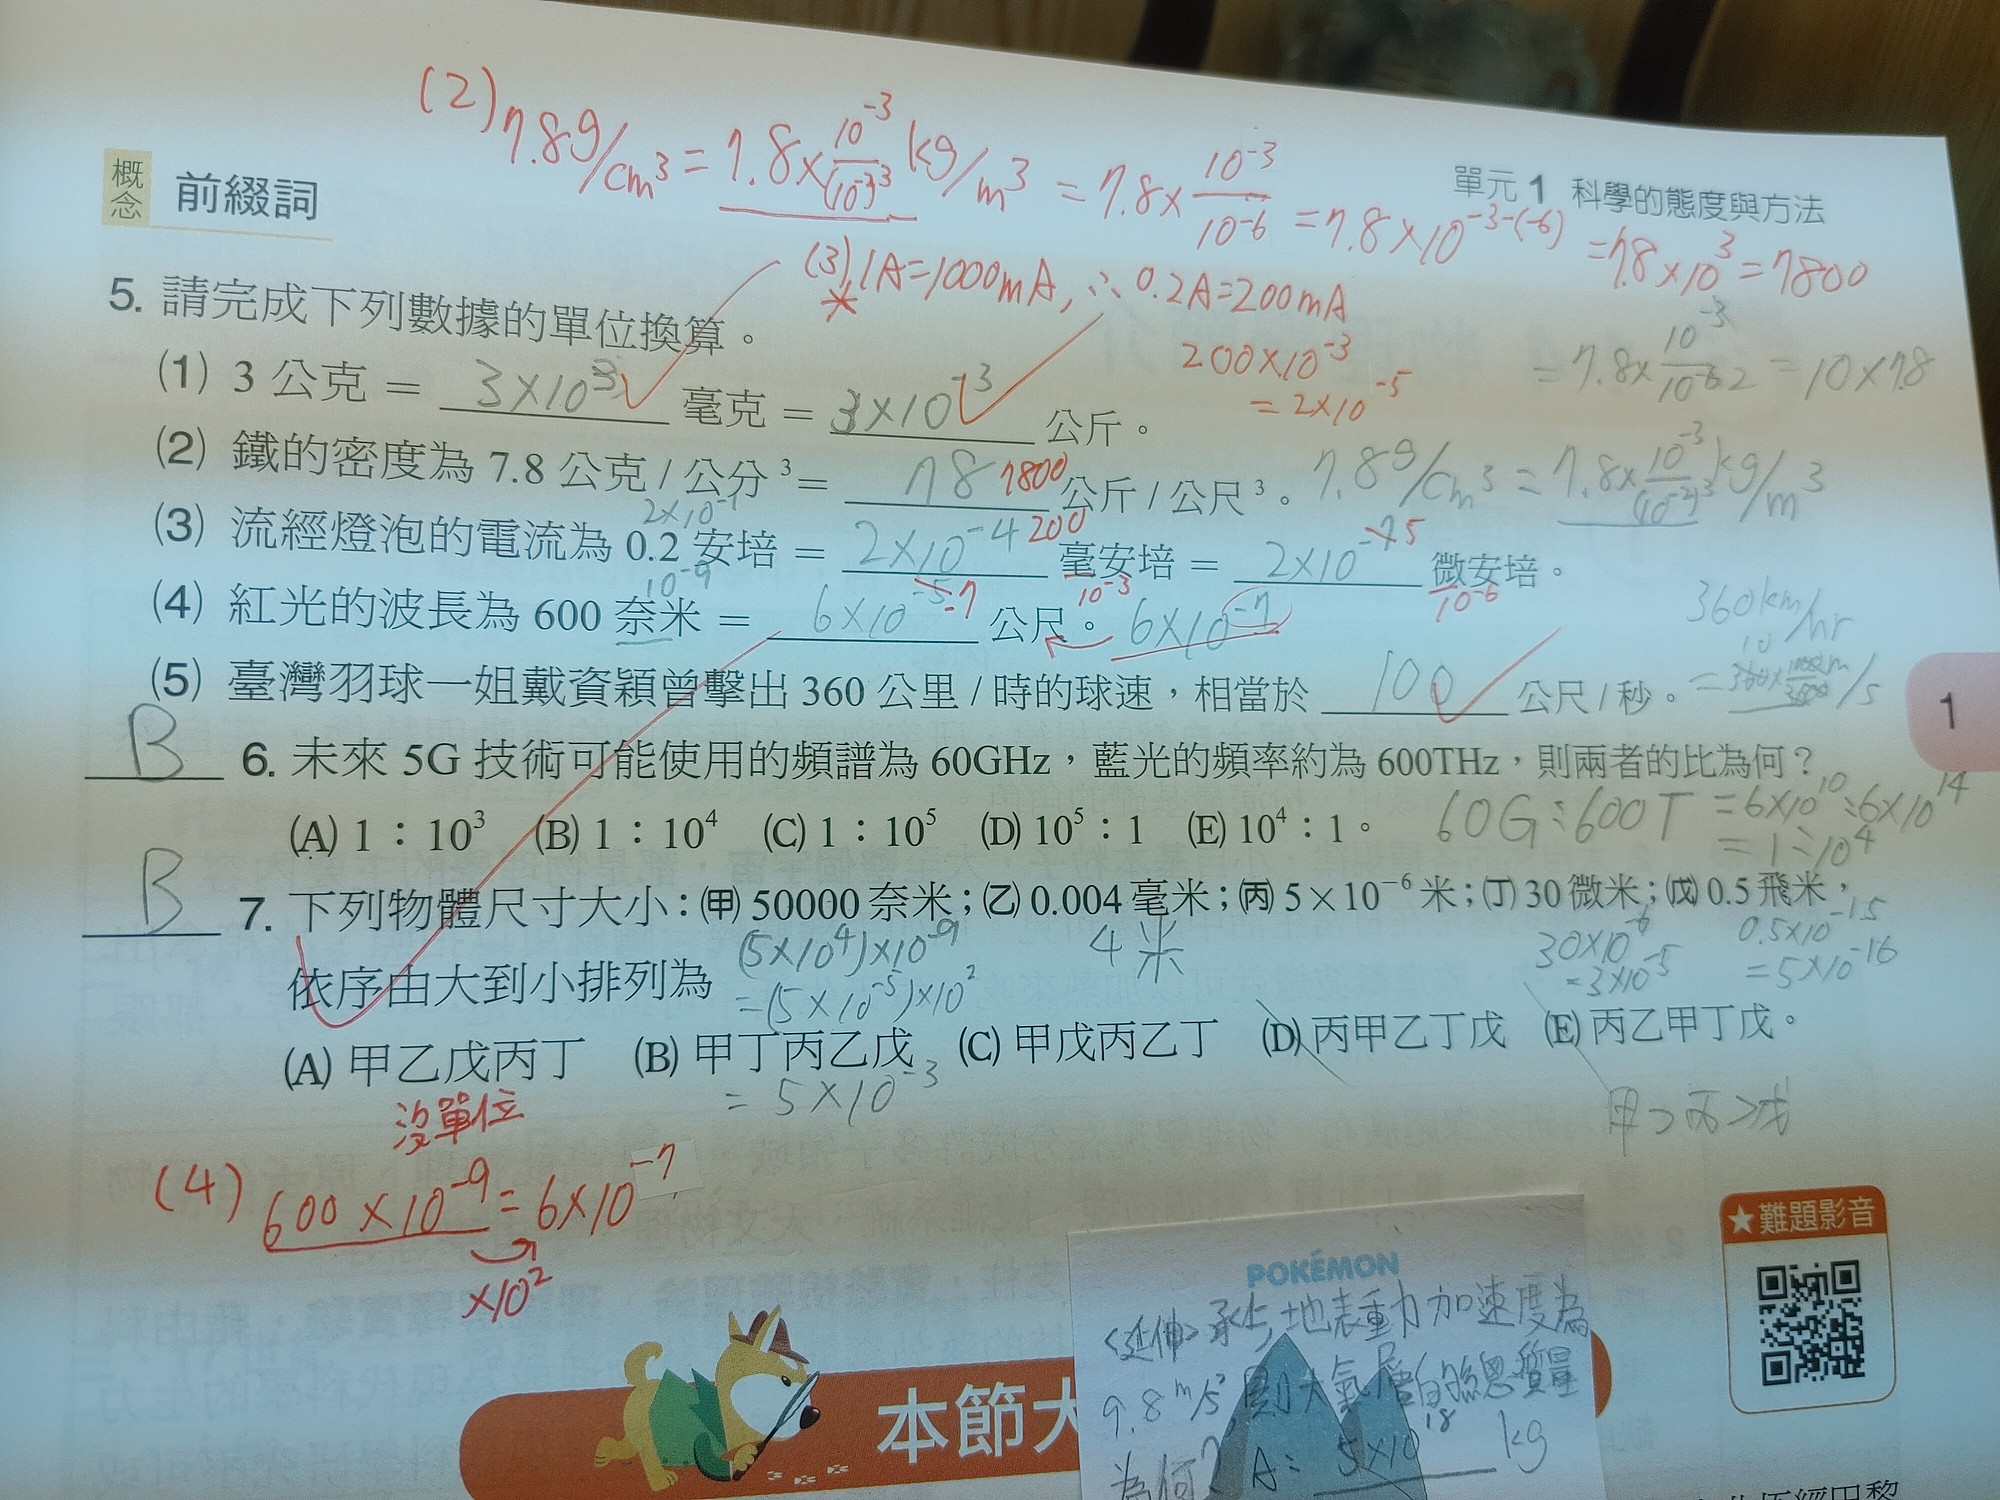 (2) 7.8g/cm³ = 7.8×10⁻³/(10⁻³)³ kg/m³ = 7.8×10⁻³/10⁻⁶ = 7.8×10⁻³⁻⁽⁻⁶⁾ = 7.8×10³ = 7800
概念 前綴詞
單元 1 科學的態度與方法
(3) 1A=1000mA, ∴ 0.2A=200mA
*
200×10⁻³
= 2×10⁻⁵
5. 請完成下列數據的單位換算。
= 7.8×10⁻³/10⁻⁶² = 10×78
(1) 3 公克 = 3×10³ 毫克 = 3×10⁻³ 公斤。
(2) 鐵的密度為 7.8 公克 / 公分³ = 78 7800 公斤 / 公尺³。
7.8g/cm³ = 7.8×10⁻³/(10⁻²)³ kg/m³
2×10⁻¹
(3) 流經燈泡的電流為 0.2 安培 = 2×10⁻⁴ 200 毫安培 = 2×10⁻⁷ 5 微安培。
10⁻⁹
10⁻³
10⁻⁶
(4) 紅光的波長為 600 奈米 = 6×10⁻⁵ -7 公尺。 6×10⁻⁷
360km/hr
= 360×1000m/3600/s
10
(5) 臺灣羽球一姐戴資穎曾擊出 360 公里 / 時的球速，相當於 100 公尺 / 秒。
1
B 6. 未來 5G 技術可能使用的頻譜為 60GHz，藍光的頻率約為 600THz，則兩者的比為何？
(A) 1：10³ (B) 1：10⁴ (C) 1：10⁵ (D) 10⁵：1 (E) 10⁴：1。
60G:600T = 6×10¹⁰:6×10¹⁴
= 1:10⁴
B 7. 下列物體尺寸大小：(甲) 50000 奈米；(乙) 0.004 毫米；(丙) 5×10⁻⁶ 米；(丁) 30 微米；(戊) 0.5 飛米，
(5×10⁴)×10⁻⁹
4 米
30×10⁻⁶
0.5×10⁻¹⁵
依序由大到小排列為
= (5×10⁻⁵)×10²
= 3×10⁻⁵
= 5×10⁻¹⁶
(A) 甲乙戊丙丁 (B) 甲丁丙乙戊 (C) 甲戊丙乙丁 (D) 丙甲乙丁戊 (E) 丙乙甲丁戊。
= 5×10⁻³
甲>丙>戊
沒單位
(4) 600×10⁻⁹ = 6×10⁻⁷
×10²
★難題影音
POKÉMON
<延伸> 承上, 地表重力加速度為
9.8 m/s², 則大氣層的總質量
為何? A: 5×10¹⁸ kg
本節大